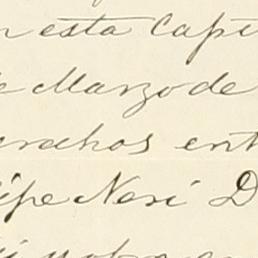 n esta Capi
de Marzo de
erechos ent
lipe Neri D